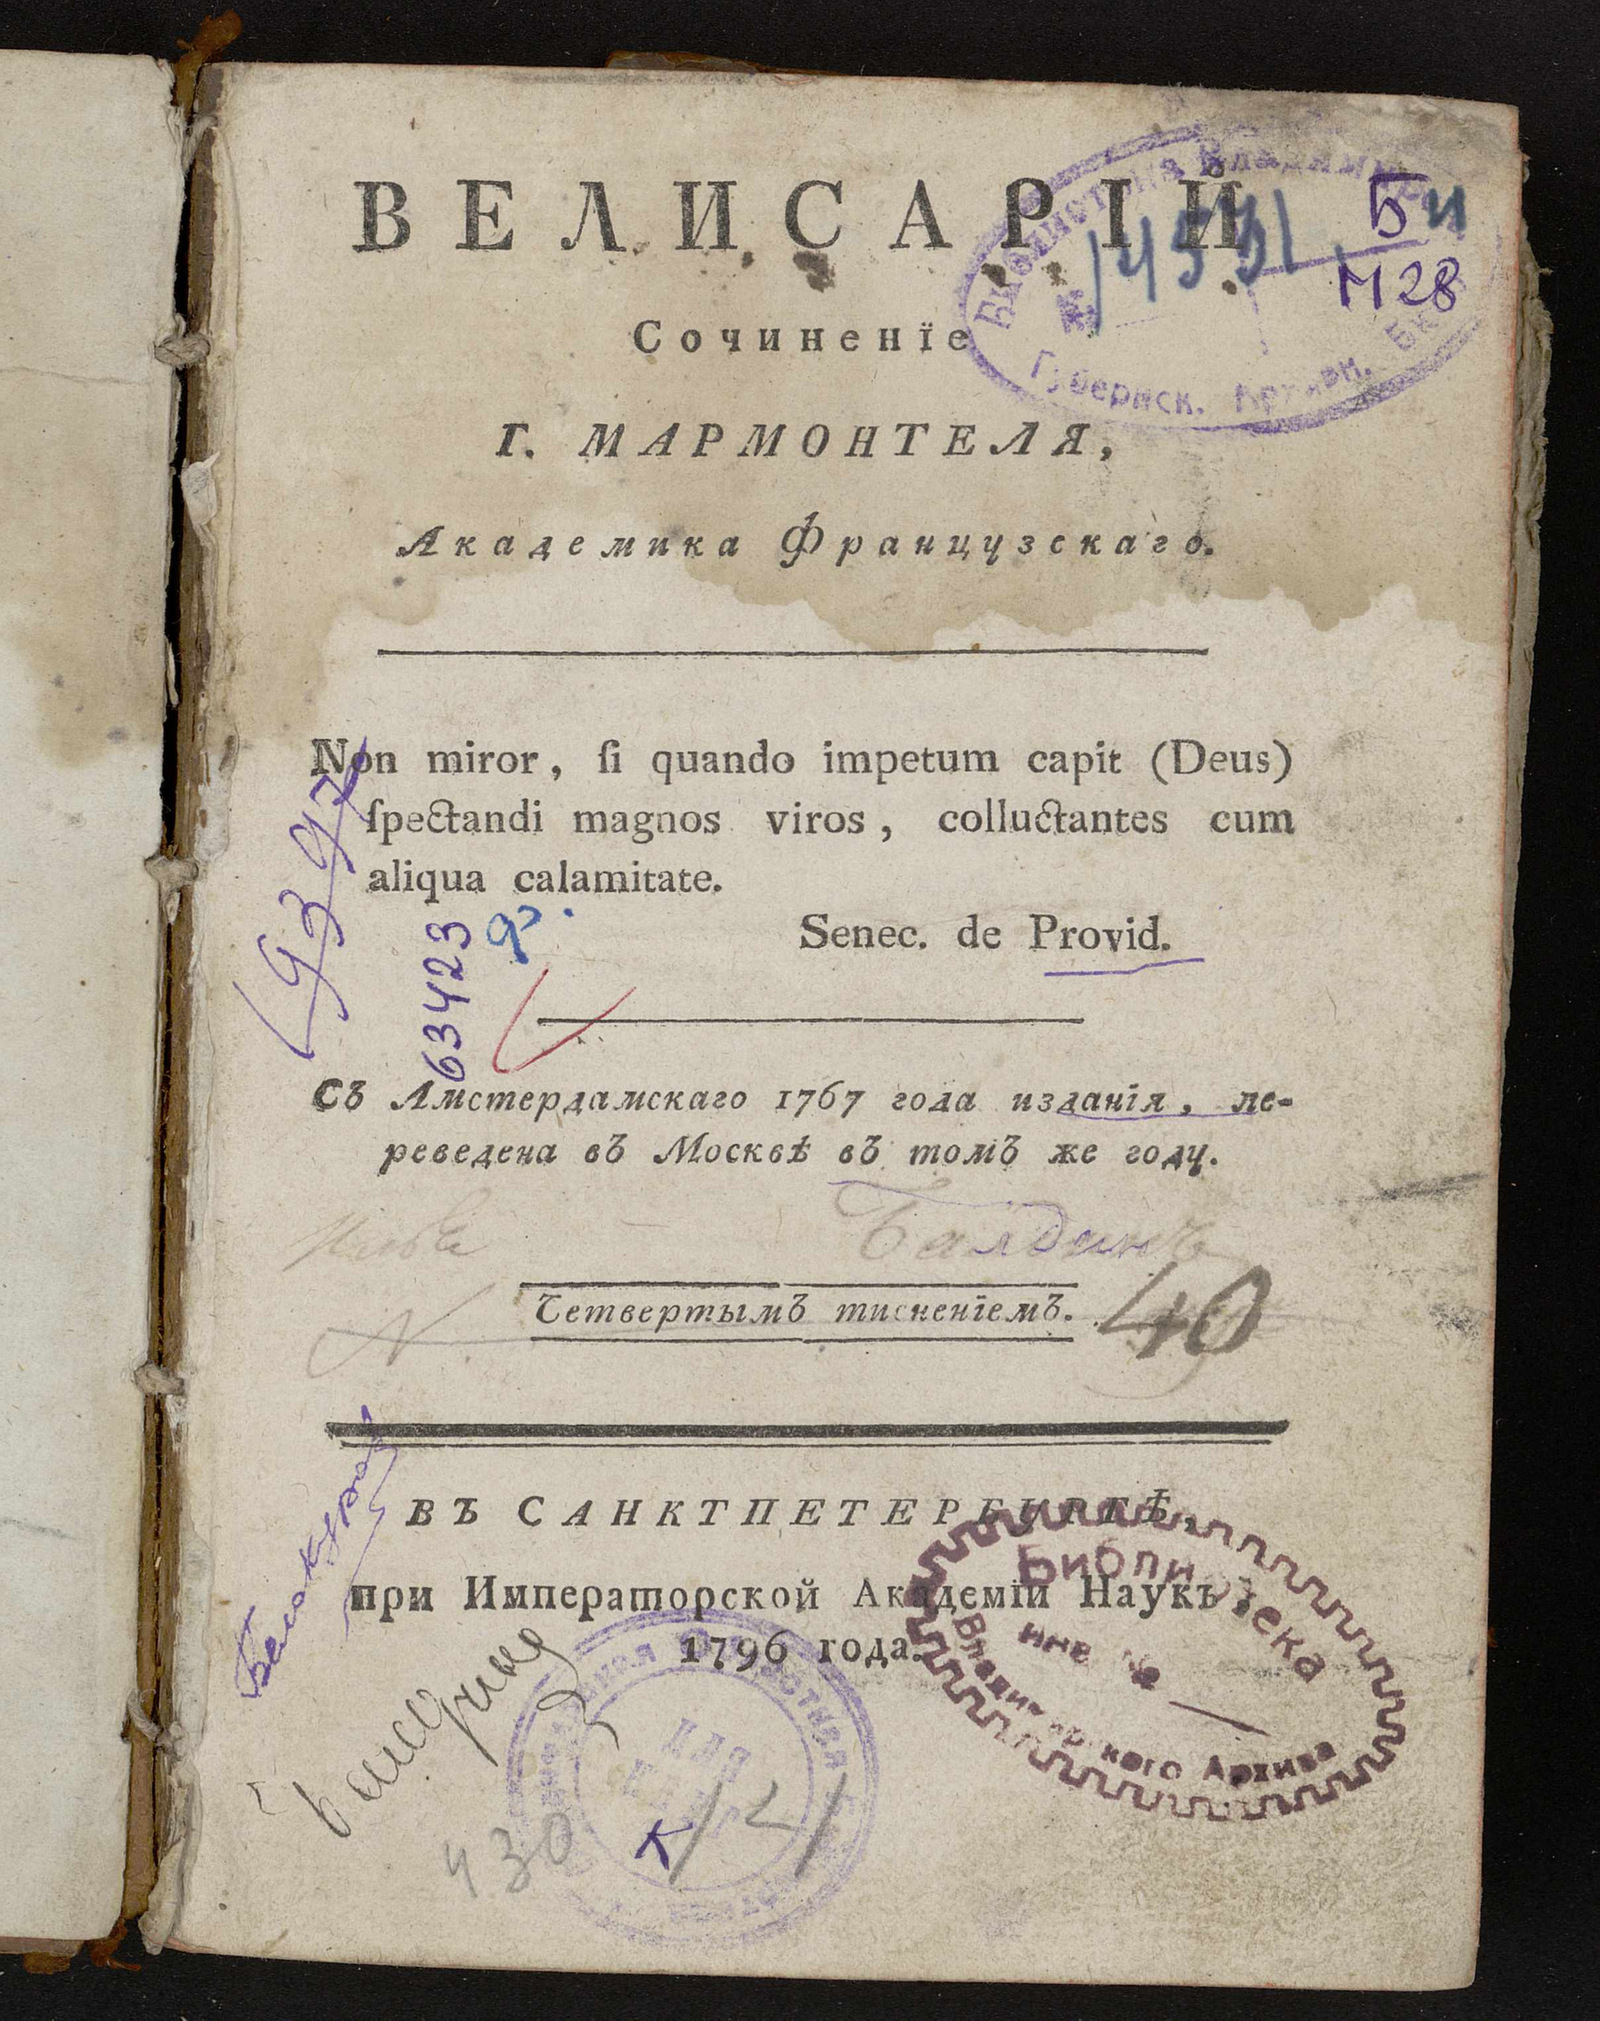 ВЕЛИСАРІЙ
Сочиненїе
Г. МАРМОНТЕЛЯ,
Академика Французскаго.
Non miror, ſi quando impetum capit (Deus)
ſpectandi magnos viros, colluctantes cum
aliqua calamitate.
Senec. de Provid.
Съ Амстердамскаго 1767 года изданїя, пе-
реведена въ Москвѣ въ томъ же году.
Четвертымъ тисненїемъ.
ВЪ САНКТПЕТЕРБУРГѢ,
при Императорской Академїи Наукъ,
1796 года.
Библиотека Владимирск
Губернск. Архивн. Бюро
№ 14531
Б
М28
63423
Балдинъ
40
430
Библиотека
инв №
Владимирского Архива